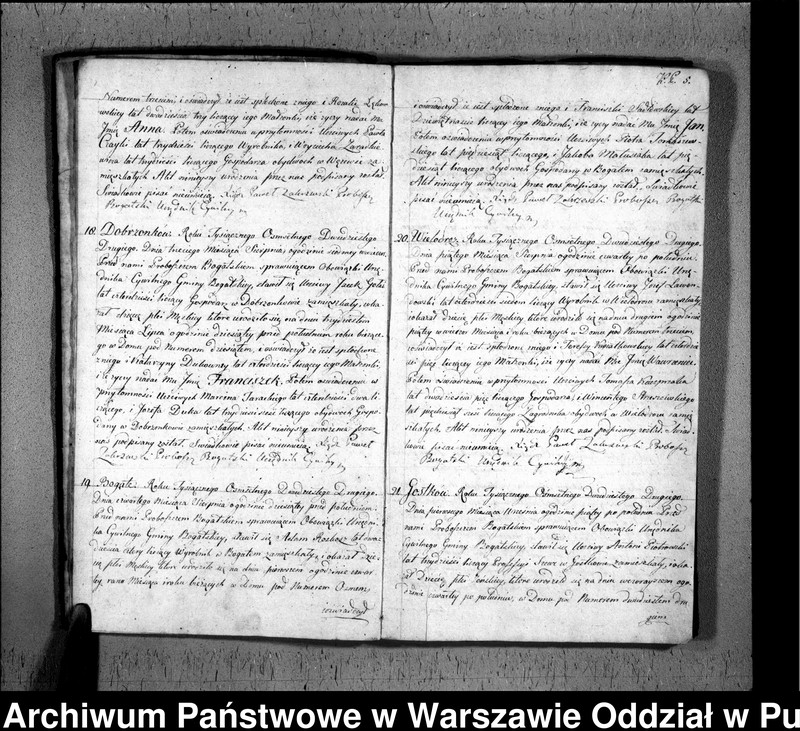 Numerem trzecim i oświadczył iż iest spłodzone z niego i Rozalij
lat dwadzieścia trzy liczący iego Małżonki, iż życzy nadać Mu
Imię Anna. Potem oświadczenia w przytomności Uczciwych Pawła
lat trzydzieści liczącego Wyrobnika, i Woyciecha
lat trzydzieści liczącego Gospodarza obydwóch w
mieszkałych. Akt ninieyszy urodzenia przez nas podpisany został.
Swiadkowie pisać nieumieią. Xiądz Paweł Zakrzewski Proboszcz
Bogatski Urzędnik Cywilny
18. Dobrzonków. Roku Tysiącznego Osmsetnego Dwudziestego
Drugiego. Dnia trzeciego Miesiąca Sierpnia, o godzinie siódmey wieczor.
Przed nami Proboszczem Bogatskim sprawuiącem Obowiązki Urzę-
dnika Cywilnego Gminy Bogatskiy, stawił się Uczciwy Jacek
lat czterdzieści liczący Gospodarz w Dobrzonkowie zamieszkały, i oka-
zał dziecię płci Męskiey które urodziło się na dniu trzydziestem
Miesiąca Lipca o godzinie dziesiątey przed południem roku bieżące-
go w Domu pod Numerem dziesiątem, i oświadczył że iest spłodzone
z niego i Katarzyny lat czterdzieści liczącey iego Małżonki,
i iż życzy nadać Mu Imię Franciszek. Potem oświadczeniu w
przytomności Uczciwych Marcina lat czterdzieści dwa li-
czącego, i Józefa Duka lat trzydzieści sześć liczącego obydwóch Gospo-
darzy w Dobrzonkowie zamieszkałych. Akt ninieyszy urodzenia przez
nas podpisany został. Swiadkowie pisać nieumieią. Xiądz Paweł
Zakrzewski Proboszcz Bogatski Urzędnik Cywilny
19. Bogate. Roku Tysiącznego Osmsetnego Dwudziestego Drugiego.
Dnia czwartego Miesiąca Sierpnia o godzinie dziesiątey przed południem.
Przed nami Proboszczem Bogatskim sprawuiącem Obowiązki Urzędni-
ka Cywilnego Gminy Bogatskiy, stawił się Adam lat dwa-
dzieścia liczący Wyrobnik w Bogatem zamieszkały, i okazał dzie-
cię płci Męskiey które urodziło się na dniu pierwszem o godzinie czwar-
tey rano Miesiąca i roku bieżących w Domu pod Numerem Osmem
i oświadczył
5.
i oświadczył iż iest spłodzone z niego i Franciszki Sadłowskiey lat
liczącey iego Małżonki, iż życzy nadać Mu Imię Jan.
Potem oświadczenia w przytomności Uczciwych Piotra
lat pięćdziesiąt liczącego, i Jakóba lat
liczącego obydwóch Gospodarzy w Bogatem zamieszkałych.
Akt ninieyszy urodzenia przez nas podpisany został. Swiadkowie
pisać nieumieią. Xiądz Paweł Zakrzewski Proboszcz Bogatski
Urzędnik Cywilny
20. Wielodroż. Roku Tysiącznego Osmsetnego Dwudziestego Drugiego.
Dnia piątego Miesiąca Sierpnia o godzinie czwartey po południu.
Przed nami Proboszczem Bogatskim sprawuiącem Obowiązki Urzę-
dnika Cywilnego Gminy Bogatskiy, stawił się Uczciwy Józef
lat czterdzieści siedem liczący Wyrobnik w Wielodrożu zamieszkały,
i okazał dziecię płci Męskiey które urodziło się na dniu drugiem o godzinie
piątey w wieczor Miesiąca i roku bieżących w Domu pod Numerem trzeciem,
i oświadczył iż iest spłodzone z niego i Teresy Kwiatkowskiey lat czterdzie-
ści pięć liczącey iego Małżonki, iż życzy nadać Mu Imię Wawrzeniec.
Potem oświadczenia w przytomności Uczciwych Tomasza
lat dwadzieścia pięć liczącego Gospodarza, i Wincentego
lat pięćdziesiąt sześć liczącego Zagrodnika obydwóch w Wielodrożu zamie-
szkałych. Akt ninieyszy urodzenia przez nas podpisany został. Swiad-
kowie pisać nieumieią. Xiądz Paweł Zakrzewski Proboszcz
Bogatski Urzędnik Cywilny
21. Gostkow. Roku Tysiącznego Osmsetnego Dwudziestego Drugiego.
Dnia pierwszego Miesiąca Września o godzinie piątey po południu. Przed
nami Proboszczem Bogatskim sprawuiącem Obowiązki Urzędnika
Cywilnego Gminy Bogatskiey, stawił się Uczciwy Antoni Piotrowski
lat trzydzieści liczący Professyi Szewc w Gostkowie zamieszkały, i oka-
zał Dziecię płci Żeńskiey, które urodziło się na dniu wczorayszem o go-
dzinie czwartey po południu, w Domu pod Numerem dwudziestem dru-
giem
Archiwum Państwowe w Warszawie Oddział w Pu